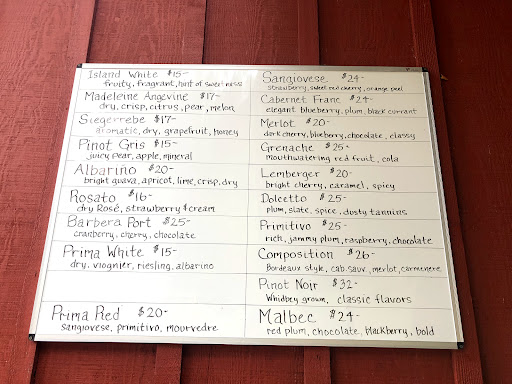 Island White $15-
fruity, fragrant, hint of sweetness
Madeleine Angevine $17-
dry, crisp, citrus, pear, melon
Siegerrebe $17-
aromatic, dry, grapefruit, honey
Pinot Gris $15-
juicy pear, apple, mineral
Albarino $20-
bright guava, apricot, lime, crisp, dry
Rosato $16-
dry Rosé, strawberry & cream
Barbera Port $25-
cranberry, cherry, chocolate
Prima White $15-
dry, viognier, riesling, albarino
Prima Red $20-
sangiovese, primitivo, mourvedre
Sangiovese $24-
strawberry, sweet red cherry, orange peel
Cabernet Franc $24-
elegant blueberry, plum, black currant
Merlot $20-
dark cherry, blueberry, chocolate, classy
Grenache $25-
mouthwatering red fruit, cola
Lemberger $20-
bright cherry, caramel, spicy
Dolcetto $25-
plum, slate, spice, dusty tannins
Primitivo $25-
rich, jammy plum, raspberry, chocolate
Composition $26-
Bordeaux style, cab.sauv., merlot, carmenere
Pinot Noir $32-
Whidbey grown, classic flavors
Malbec $24-
red plum, chocolate, blackberry, bold